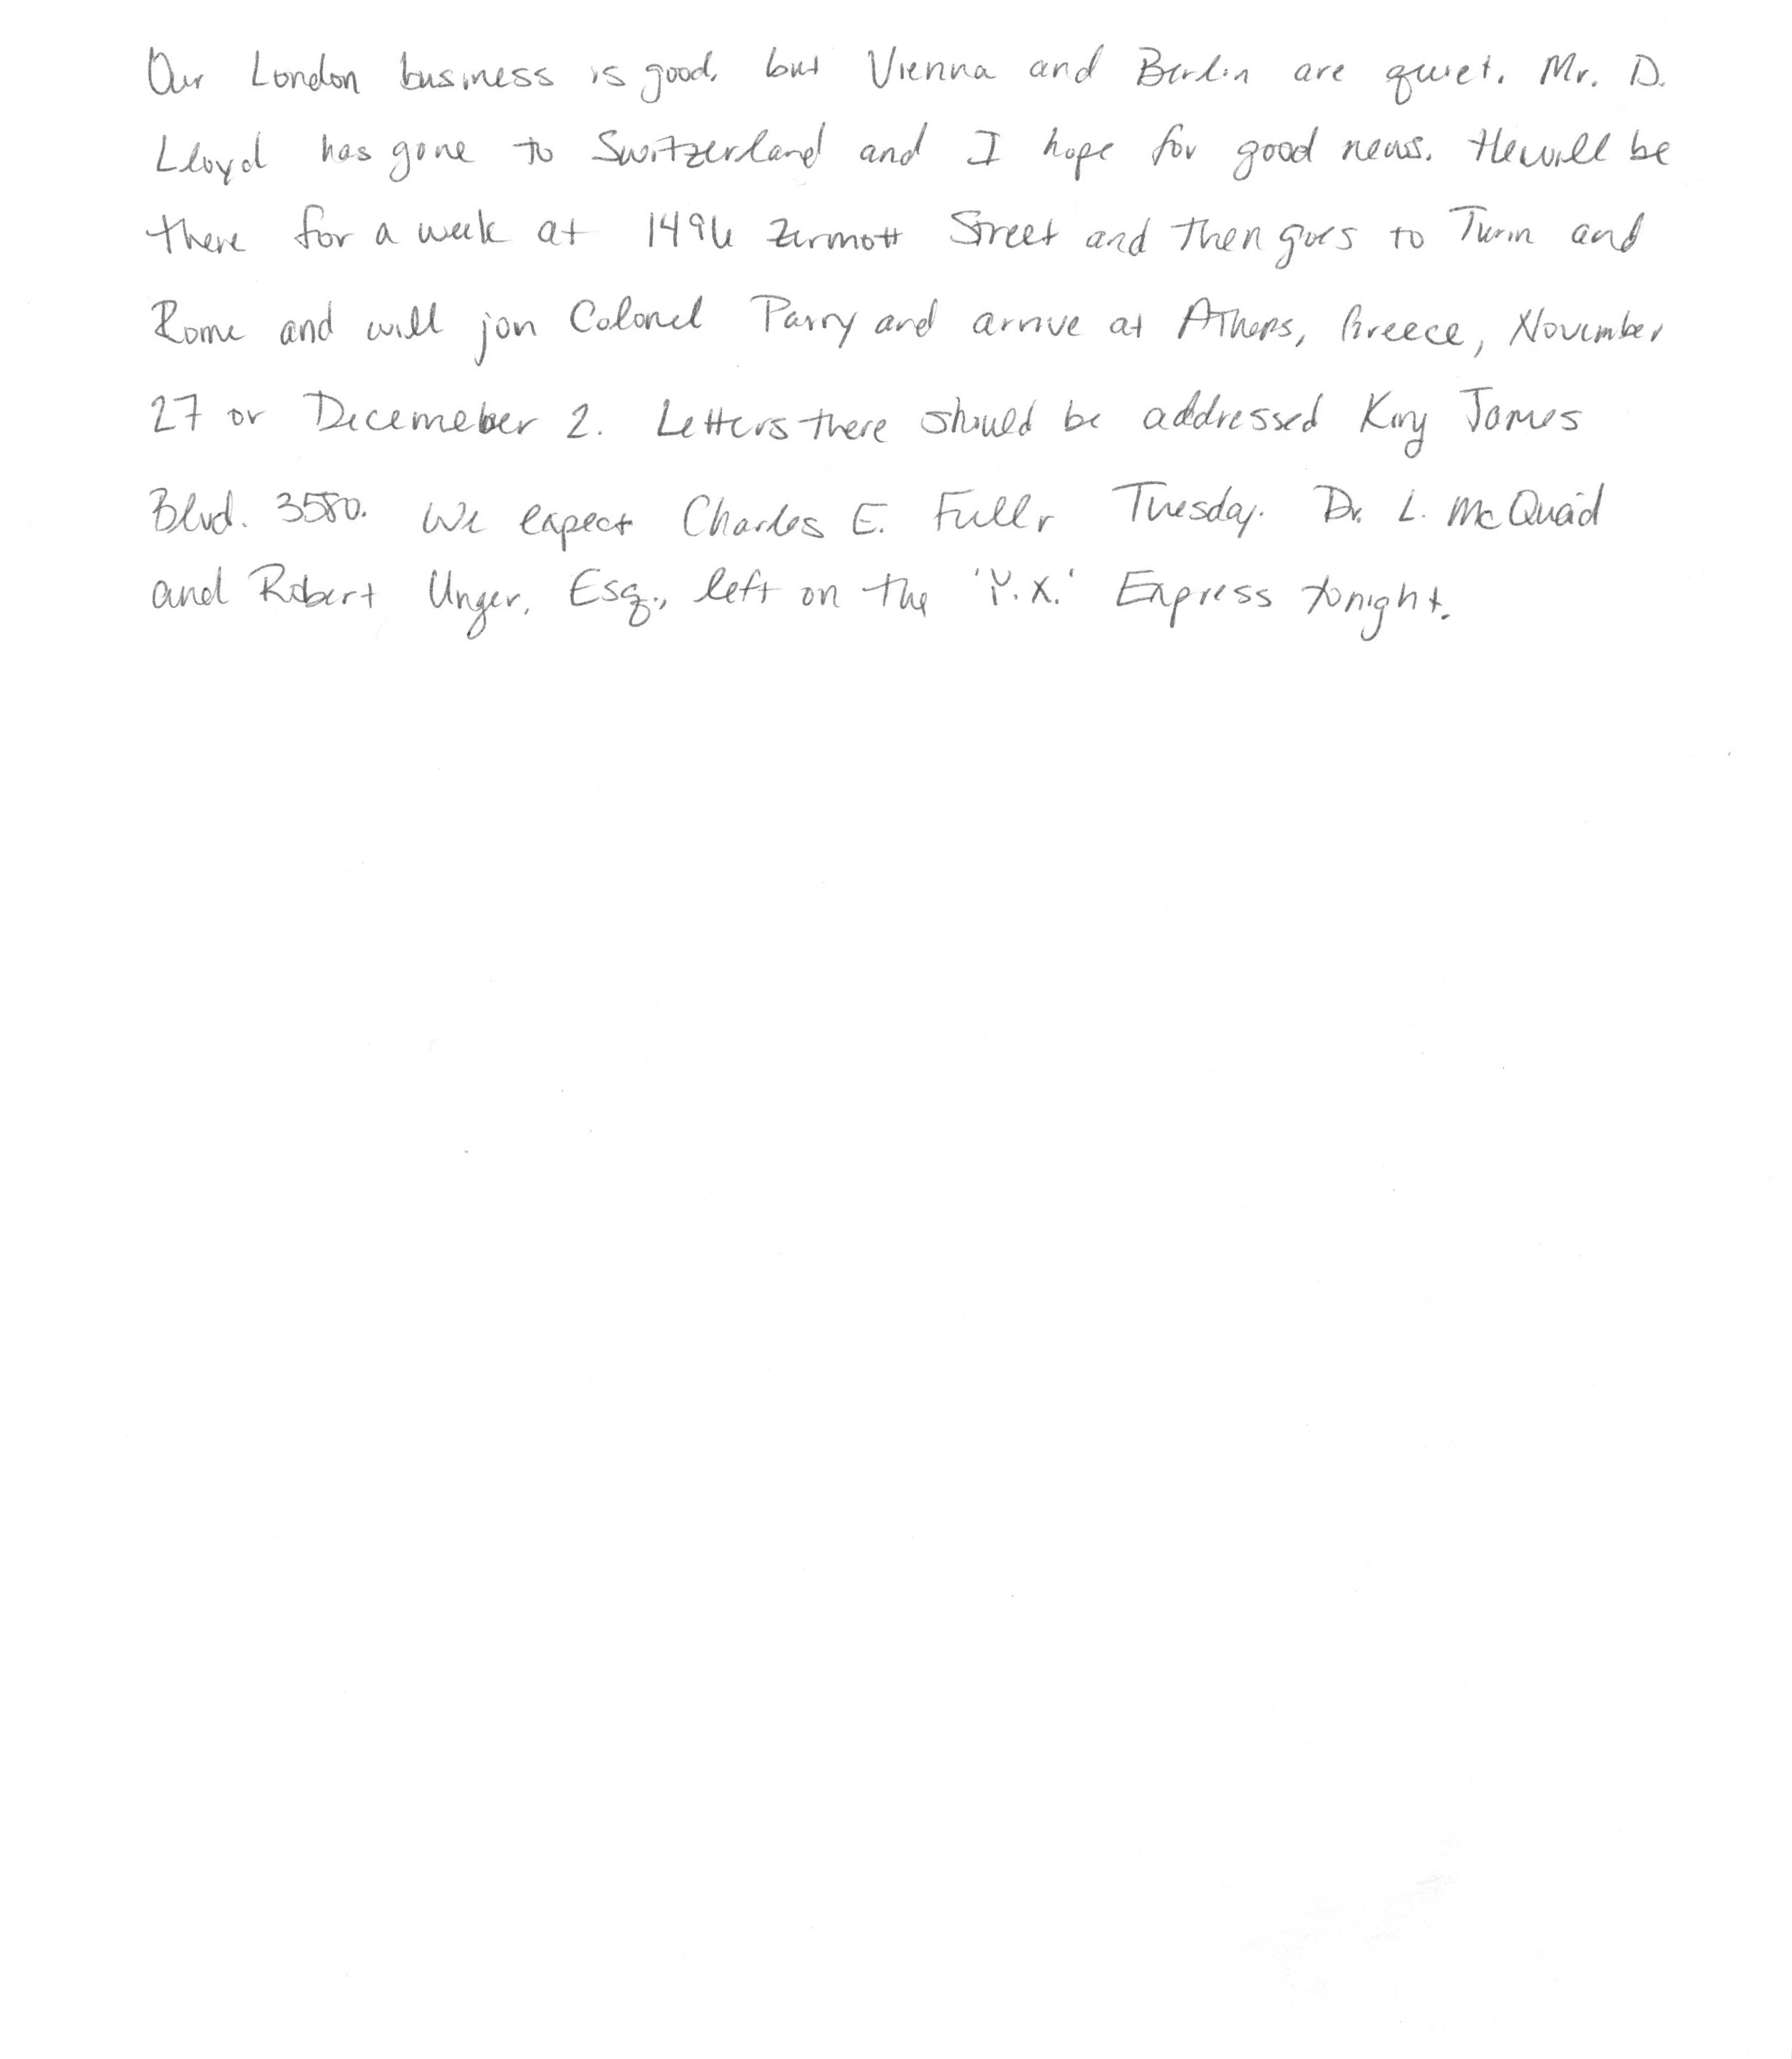 Our London business is good, but Vienna and Berlin are quiet. Mr. D.
Lloyd has gone to Switzerland and I hope for good news. He will be
there for a week at 1496 Zermott Street and then goes to Turin and
Rome and will join Colonel Parry and arrive at Athens, Greece, November
27 or Decemeber 2. Letters there should be addressed King James
Blvd. 3580. We expect Charles E. Fuller Tuesday. Dr. L. McQuaid
and Robert Unger, Esq., left on the 'Y.X.' Express tonight.